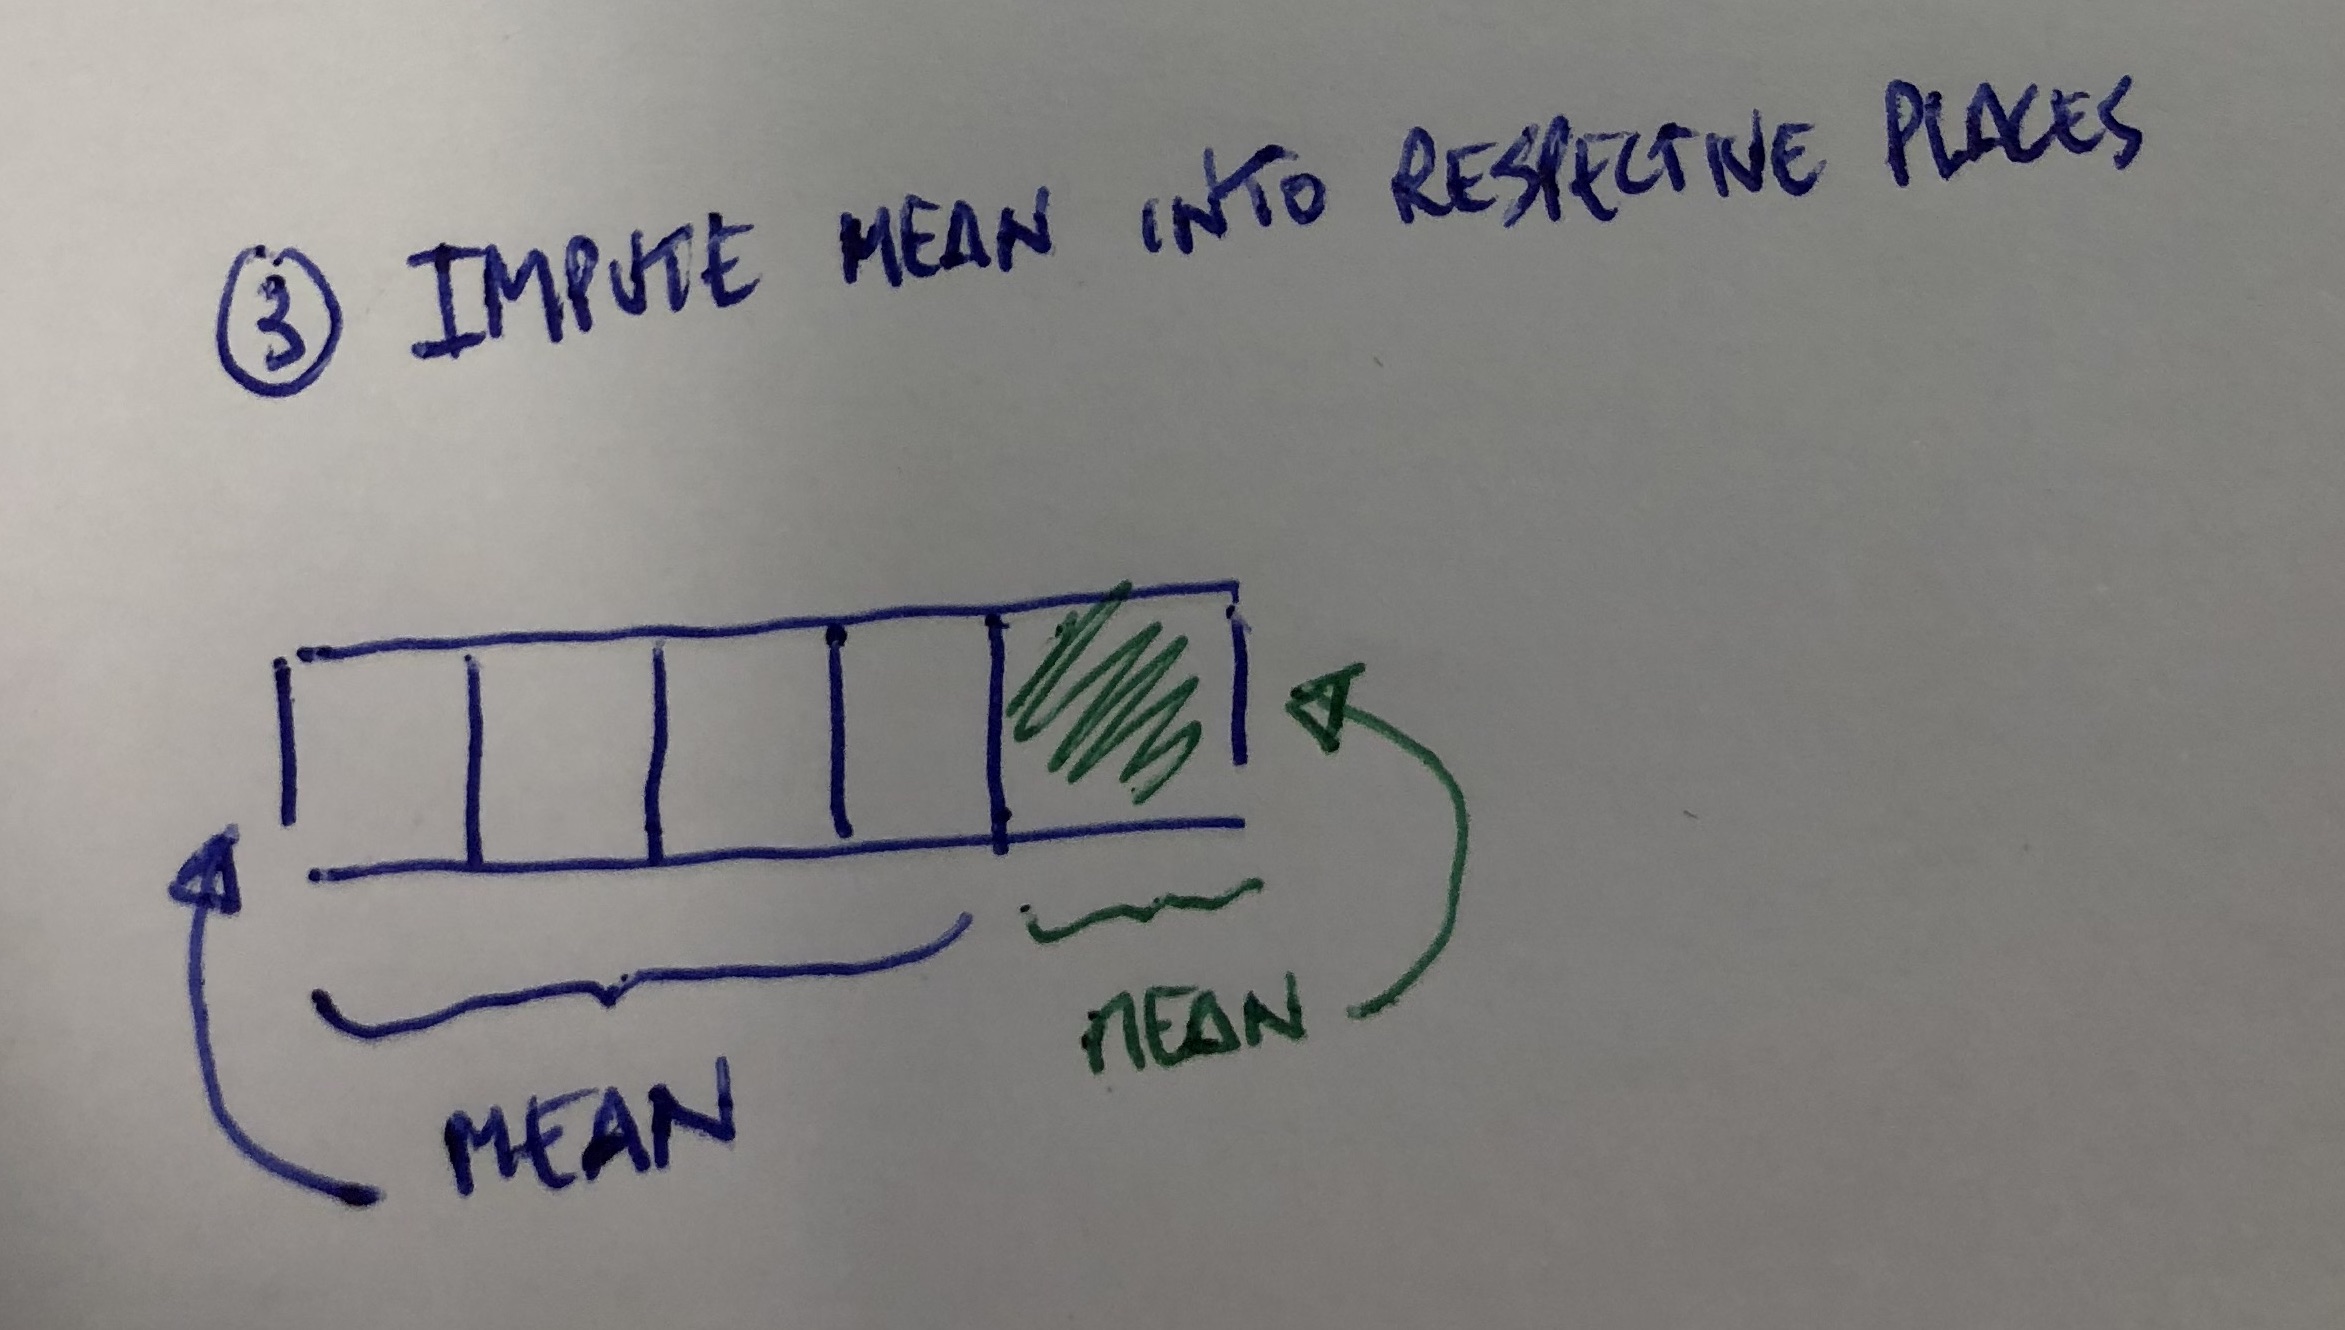 ③ IMPUTE MEAN INTO RESPECTIVE PLACES
MEAN
MEAN